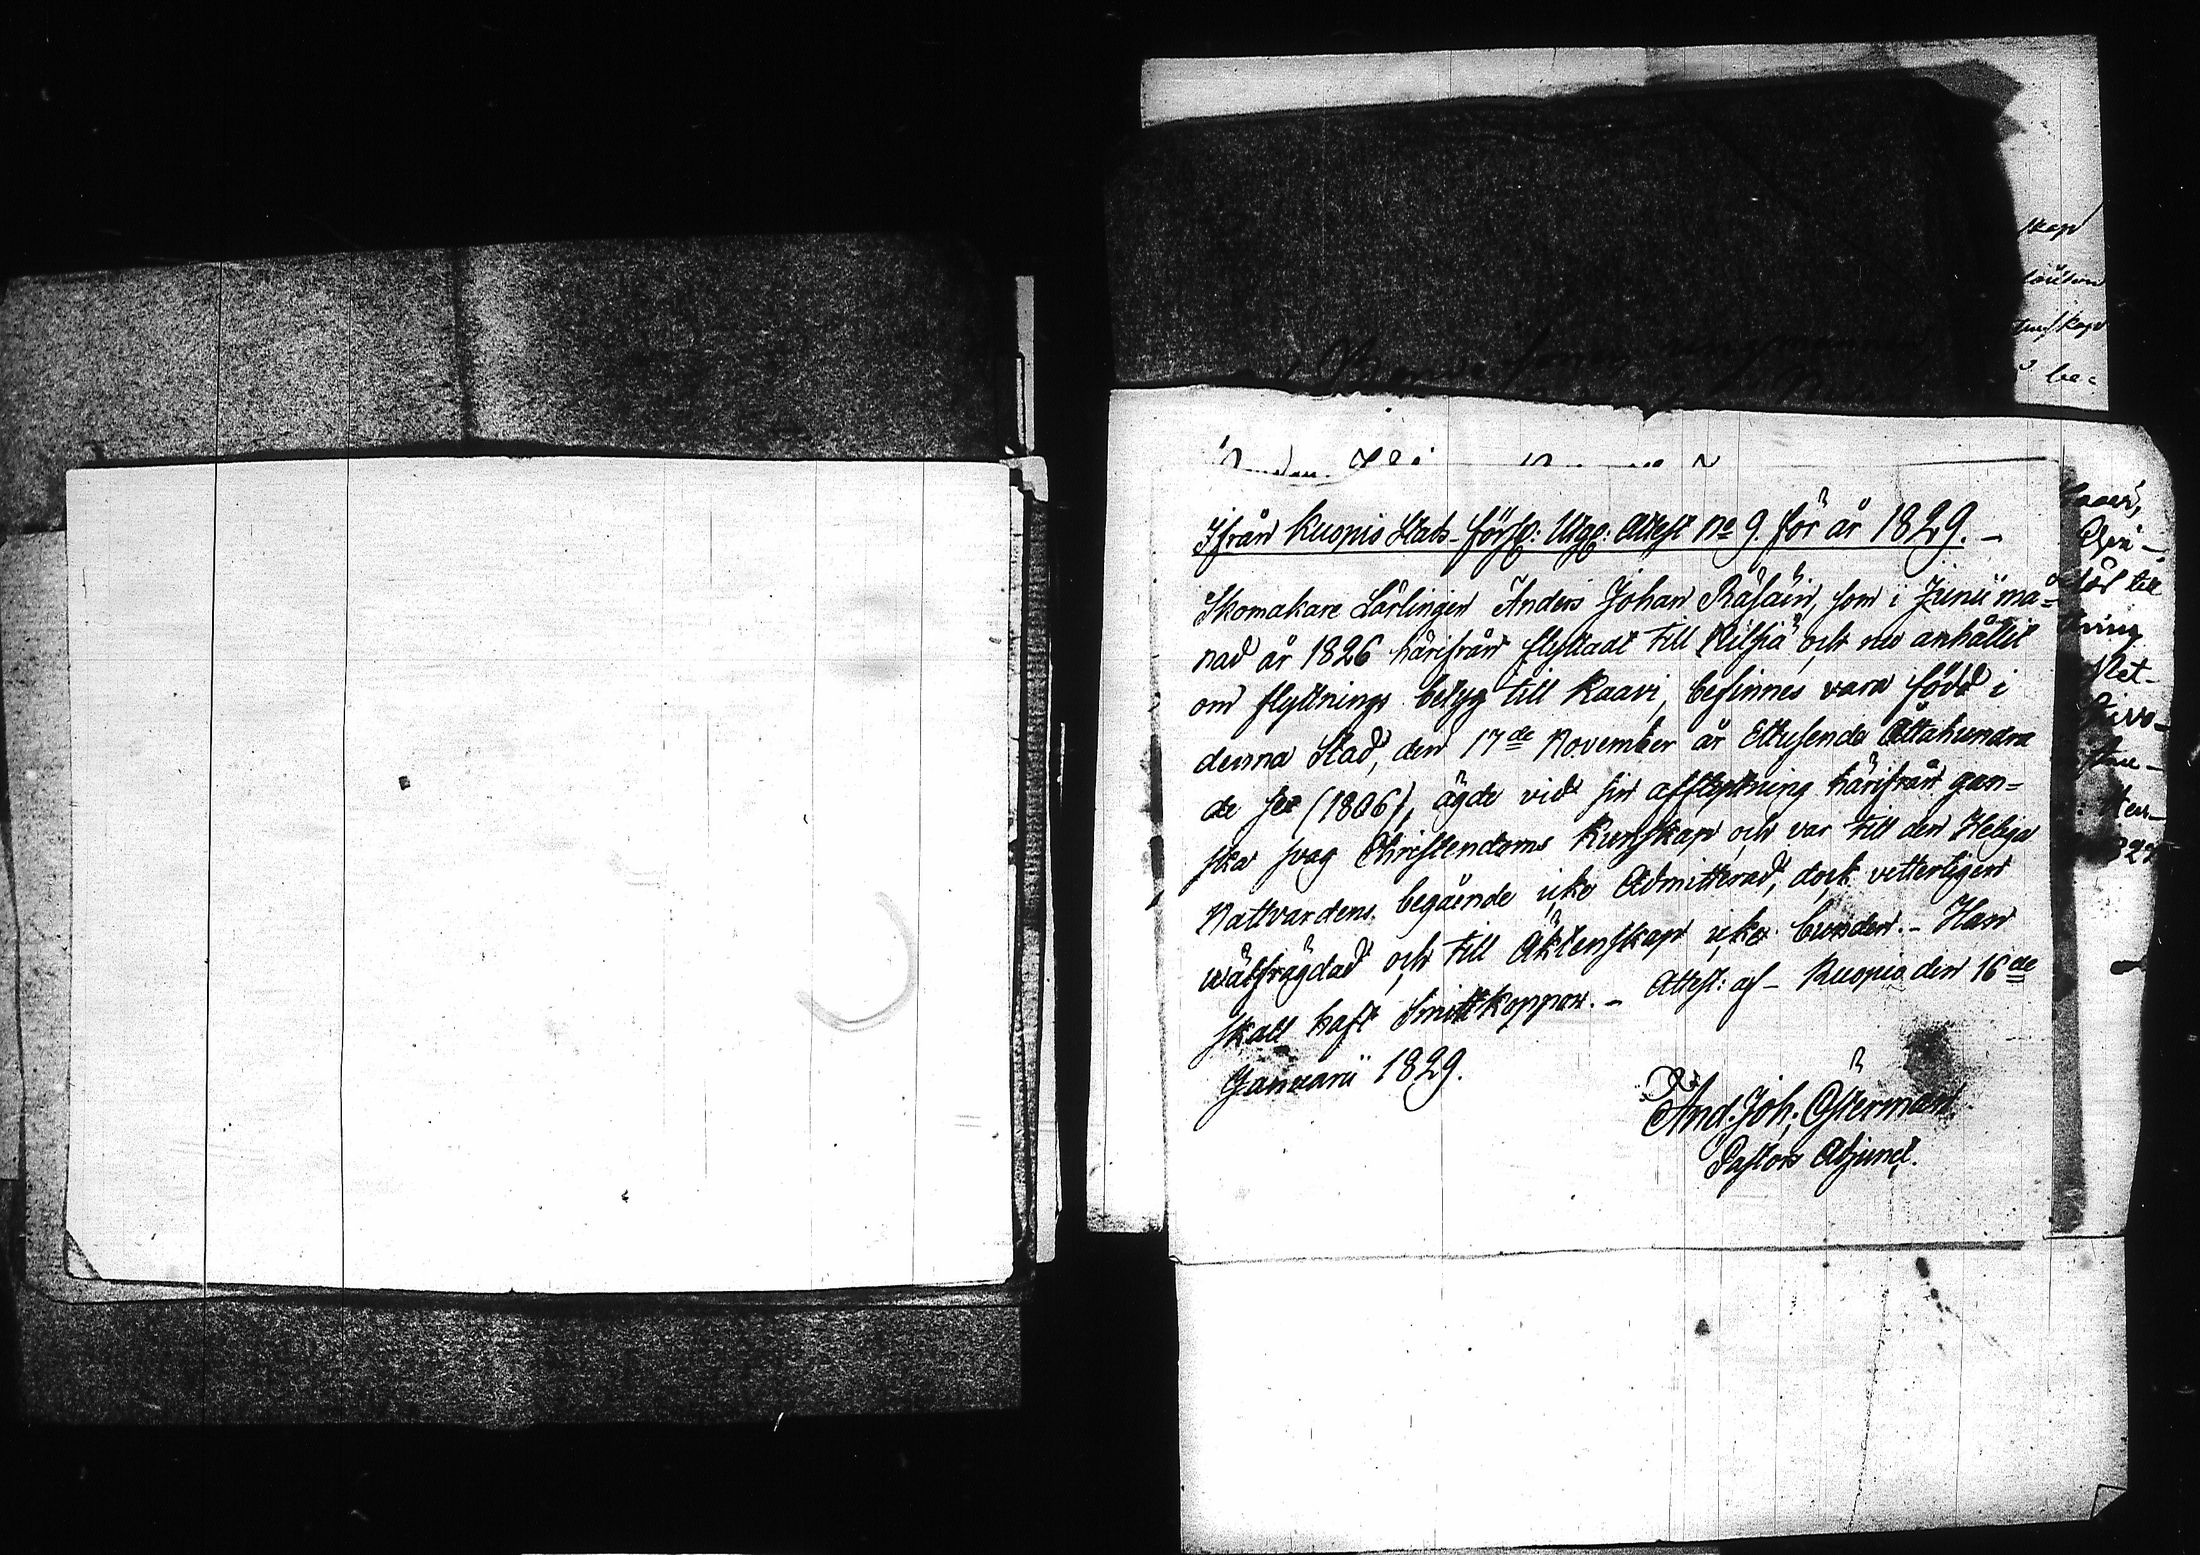 Ifrån Kuopio Stads-förs: Utge: Attest No 9. för år 1829. –
Skomakare Lärlingen Anders Johan Räsäin, som i Junii må=
nad år 1826 härifrån flyttadt till Nilsiä och nu anhållit
om flyttnings betyg till Kaavi, befinnes vara född i
denna Stad, den 17de November år Ettusende Åttahundra
de sex (1806), ägde vid sin afflyttning härifrån gan=
ska svag Christendoms Kunskap och var till den Heliga
Nattvardens begående icke Admitterad, dock vetterligen
wälfrägdad och till Äktenskap icke bunden. – Han
skall haft Smittkoppor. – Attest: af – Kuopio den 16de
Januarii 1829.
And. Joh. Österman
Pastors Adjunct.
skap
tenskap
be=
till
ring
Nat-